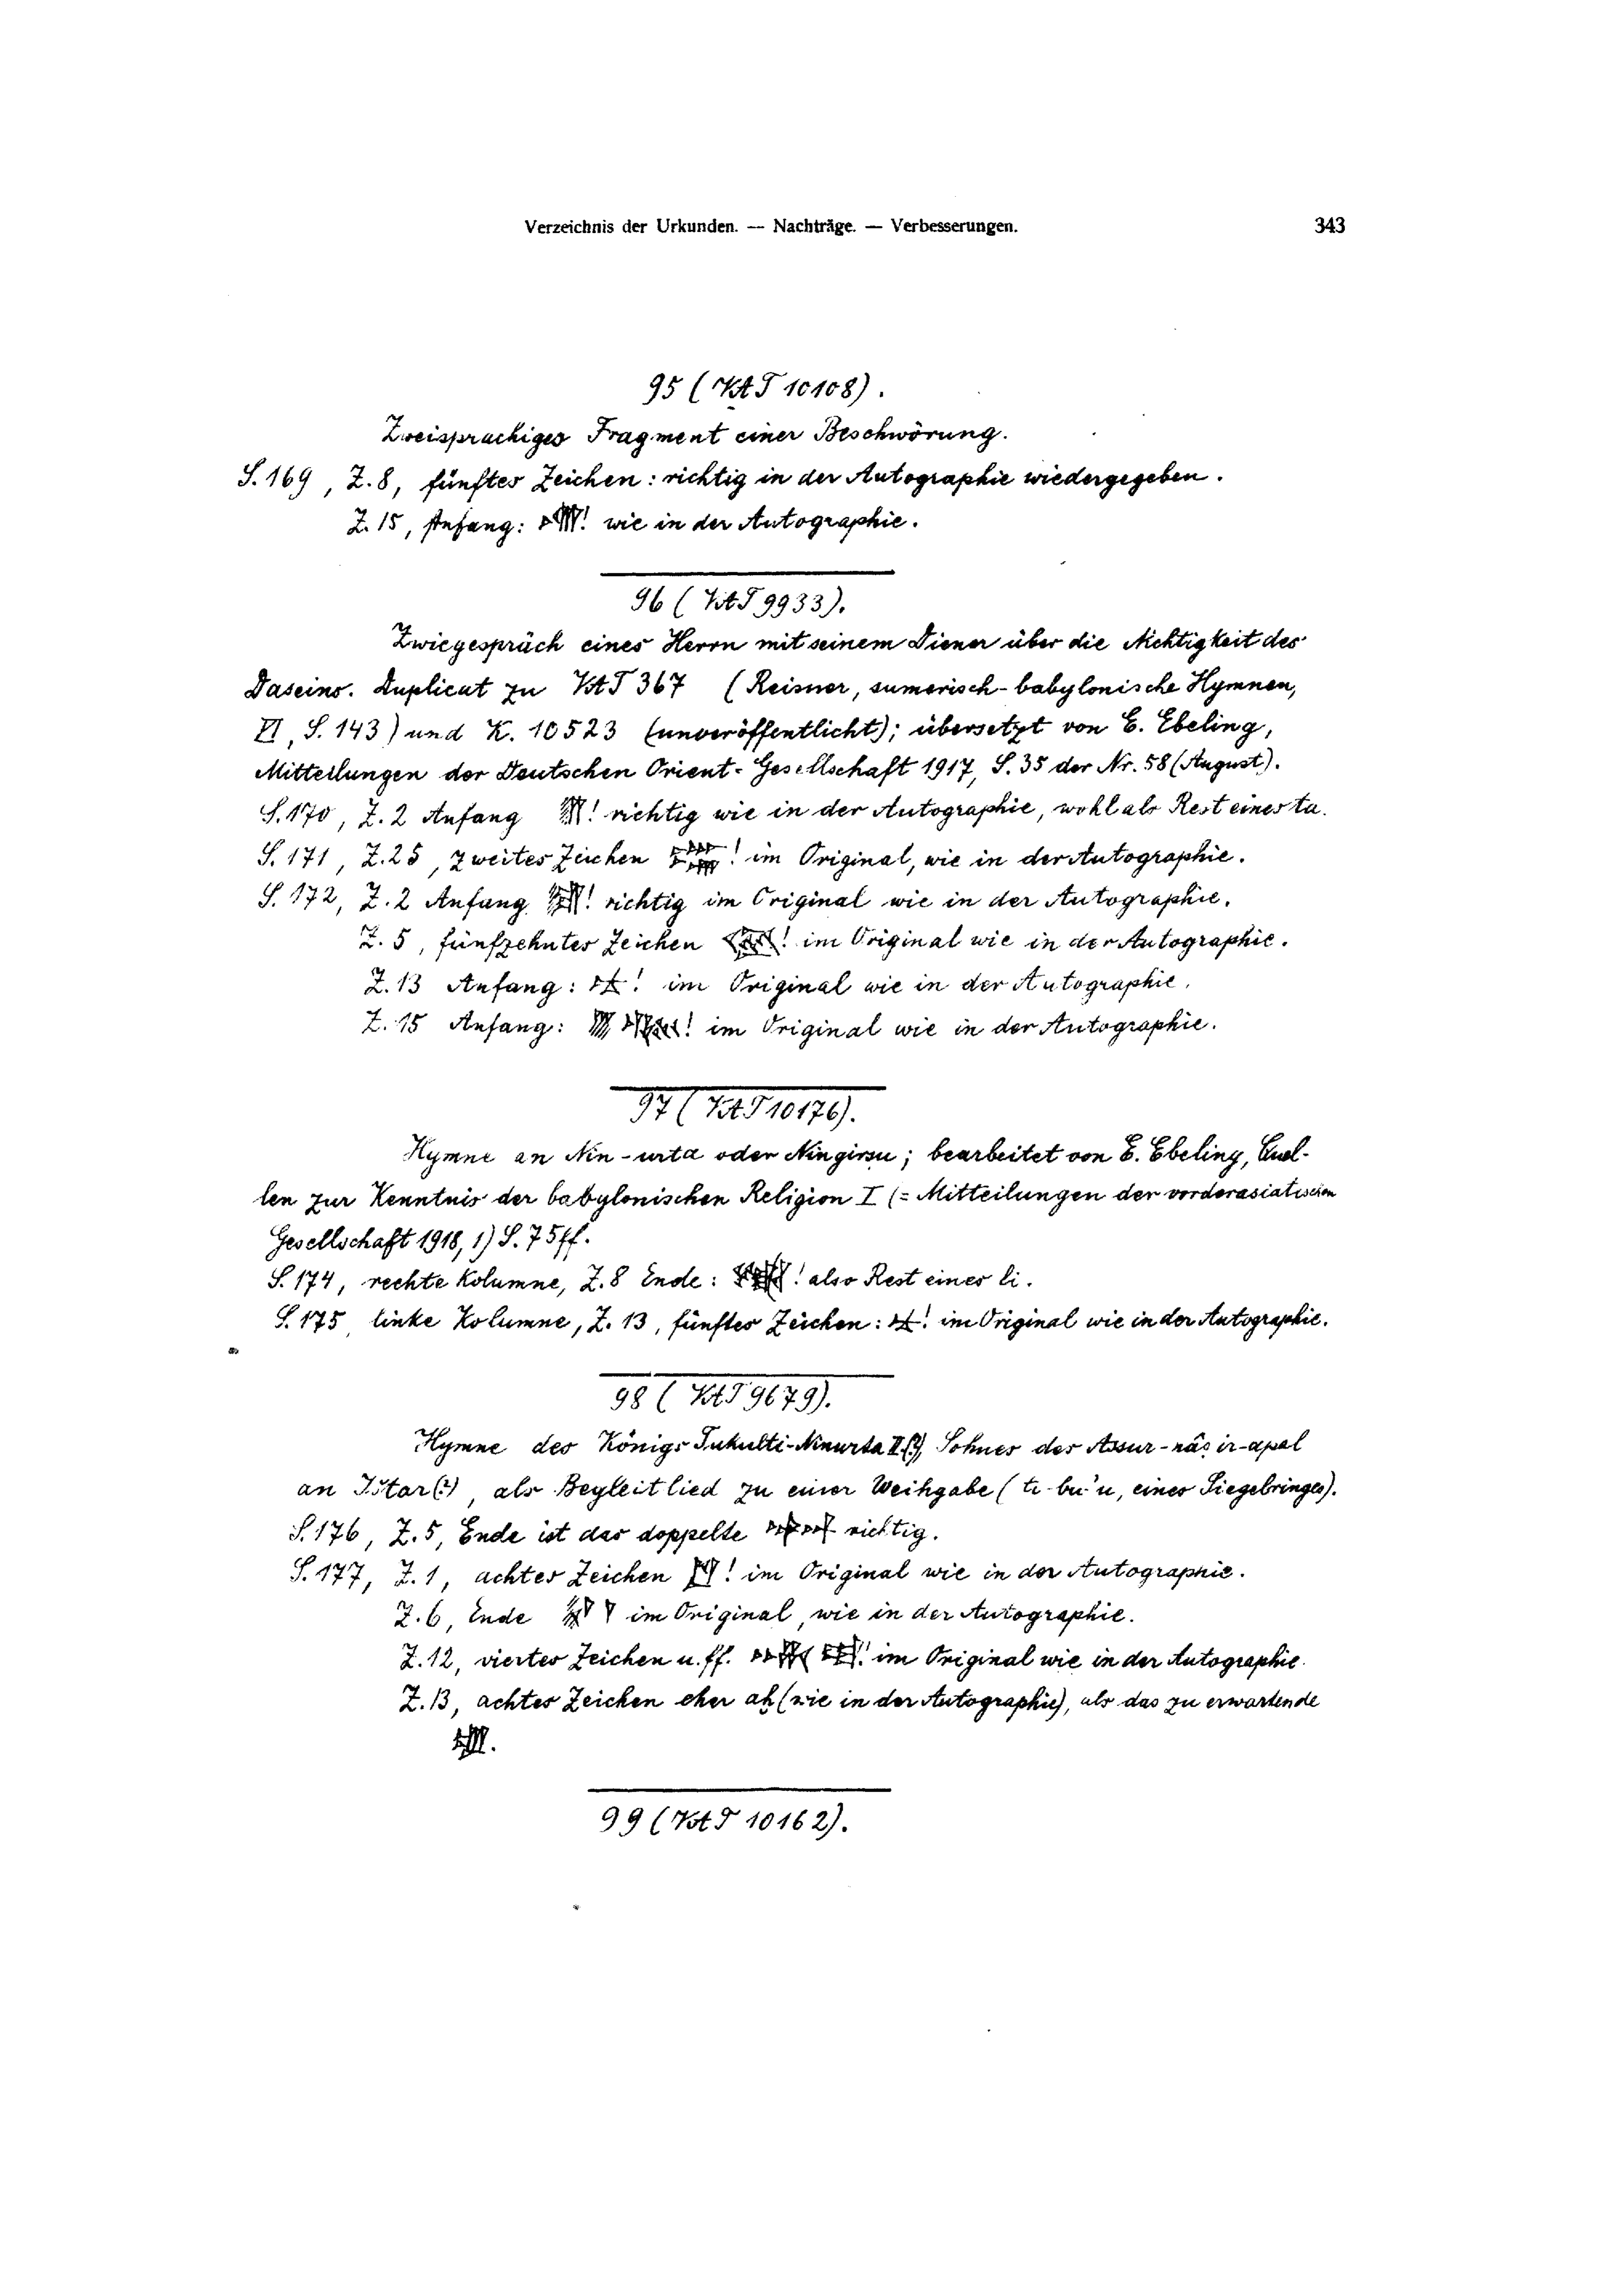 Verzeichnis der Urkunden. — Nachträge. — Verbesserungen. 343
95 (VAT 10108).
Zweisprachiges Fragment einer Beschwörung.
S. 169, Z. 8, fünftes Zeichen: richtig in der Autographie wiedergegeben.
Z. 15, Anfang: ! wie in der Autographie.
96 (VAT 9933).
Zwiegespräch eines Herrn mit seinem Diener über die Nichtigkeit des
Daseins. Duplicat zu VAT 367 (Reisner, sumerisch-babylonische Hymnen,
VI, S. 143) und K. 10523 (unveröffentlicht); übersetzt von E. Ebeling,
Mitteilungen der Deutschen Orient-Gesellschaft 1917, S. 35 der Nr. 58 (August).
S. 170, Z. 2 Anfang ! richtig wie in der Autographie, wohl als Rest eines ta.
S. 171, Z. 25, zweites Zeichen ! im Original, wie in der Autographie.
S. 172, Z. 2 Anfang ! richtig im Original wie in der Autographie.
Z. 5, fünfzehntes Zeichen ! im Original wie in der Autographie.
Z. 13 Anfang: ! im Original wie in der Autographie.
Z. 15 Anfang: ! im Original wie in der Autographie.
97 (VAT 10176).
Hymne an Nin-urta oder Ningirsu; bearbeitet von E. Ebeling, Quel-
len zur Kenntnis der babylonischen Religion I (= Mitteilungen der vorderasiatischen
Gesellschaft 1918, 1) S. 75ff.
S. 174, rechte Kolumne, Z. 8 Ende: ! also Rest eines li.
S. 175 linke Kolumne, Z. 13, fünftes Zeichen: ! im Original wie in der Autographie.
98 (VAT 9679).
Hymne des Königs Tukulti-Ninurta II(?), Sohnes des Assur-nâṣir-apal
an Ištar(?), als Begleitlied zu einer Weihgabe (ti-bu-'u, eines Siegelringes).
S. 176, Z. 5, Ende ist das doppelte richtig.
S. 177, Z. 1, achtes Zeichen ! im Original wie in der Autographie.
Z. 6, Ende im Original, wie in der Autographie.
Z. 12, viertes Zeichen u. ff. ! im Original wie in der Autographie.
Z. 13, achtes Zeichen eher aḫ (wie in der Autographie), als das zu erwartende
99 (VAT 10162).